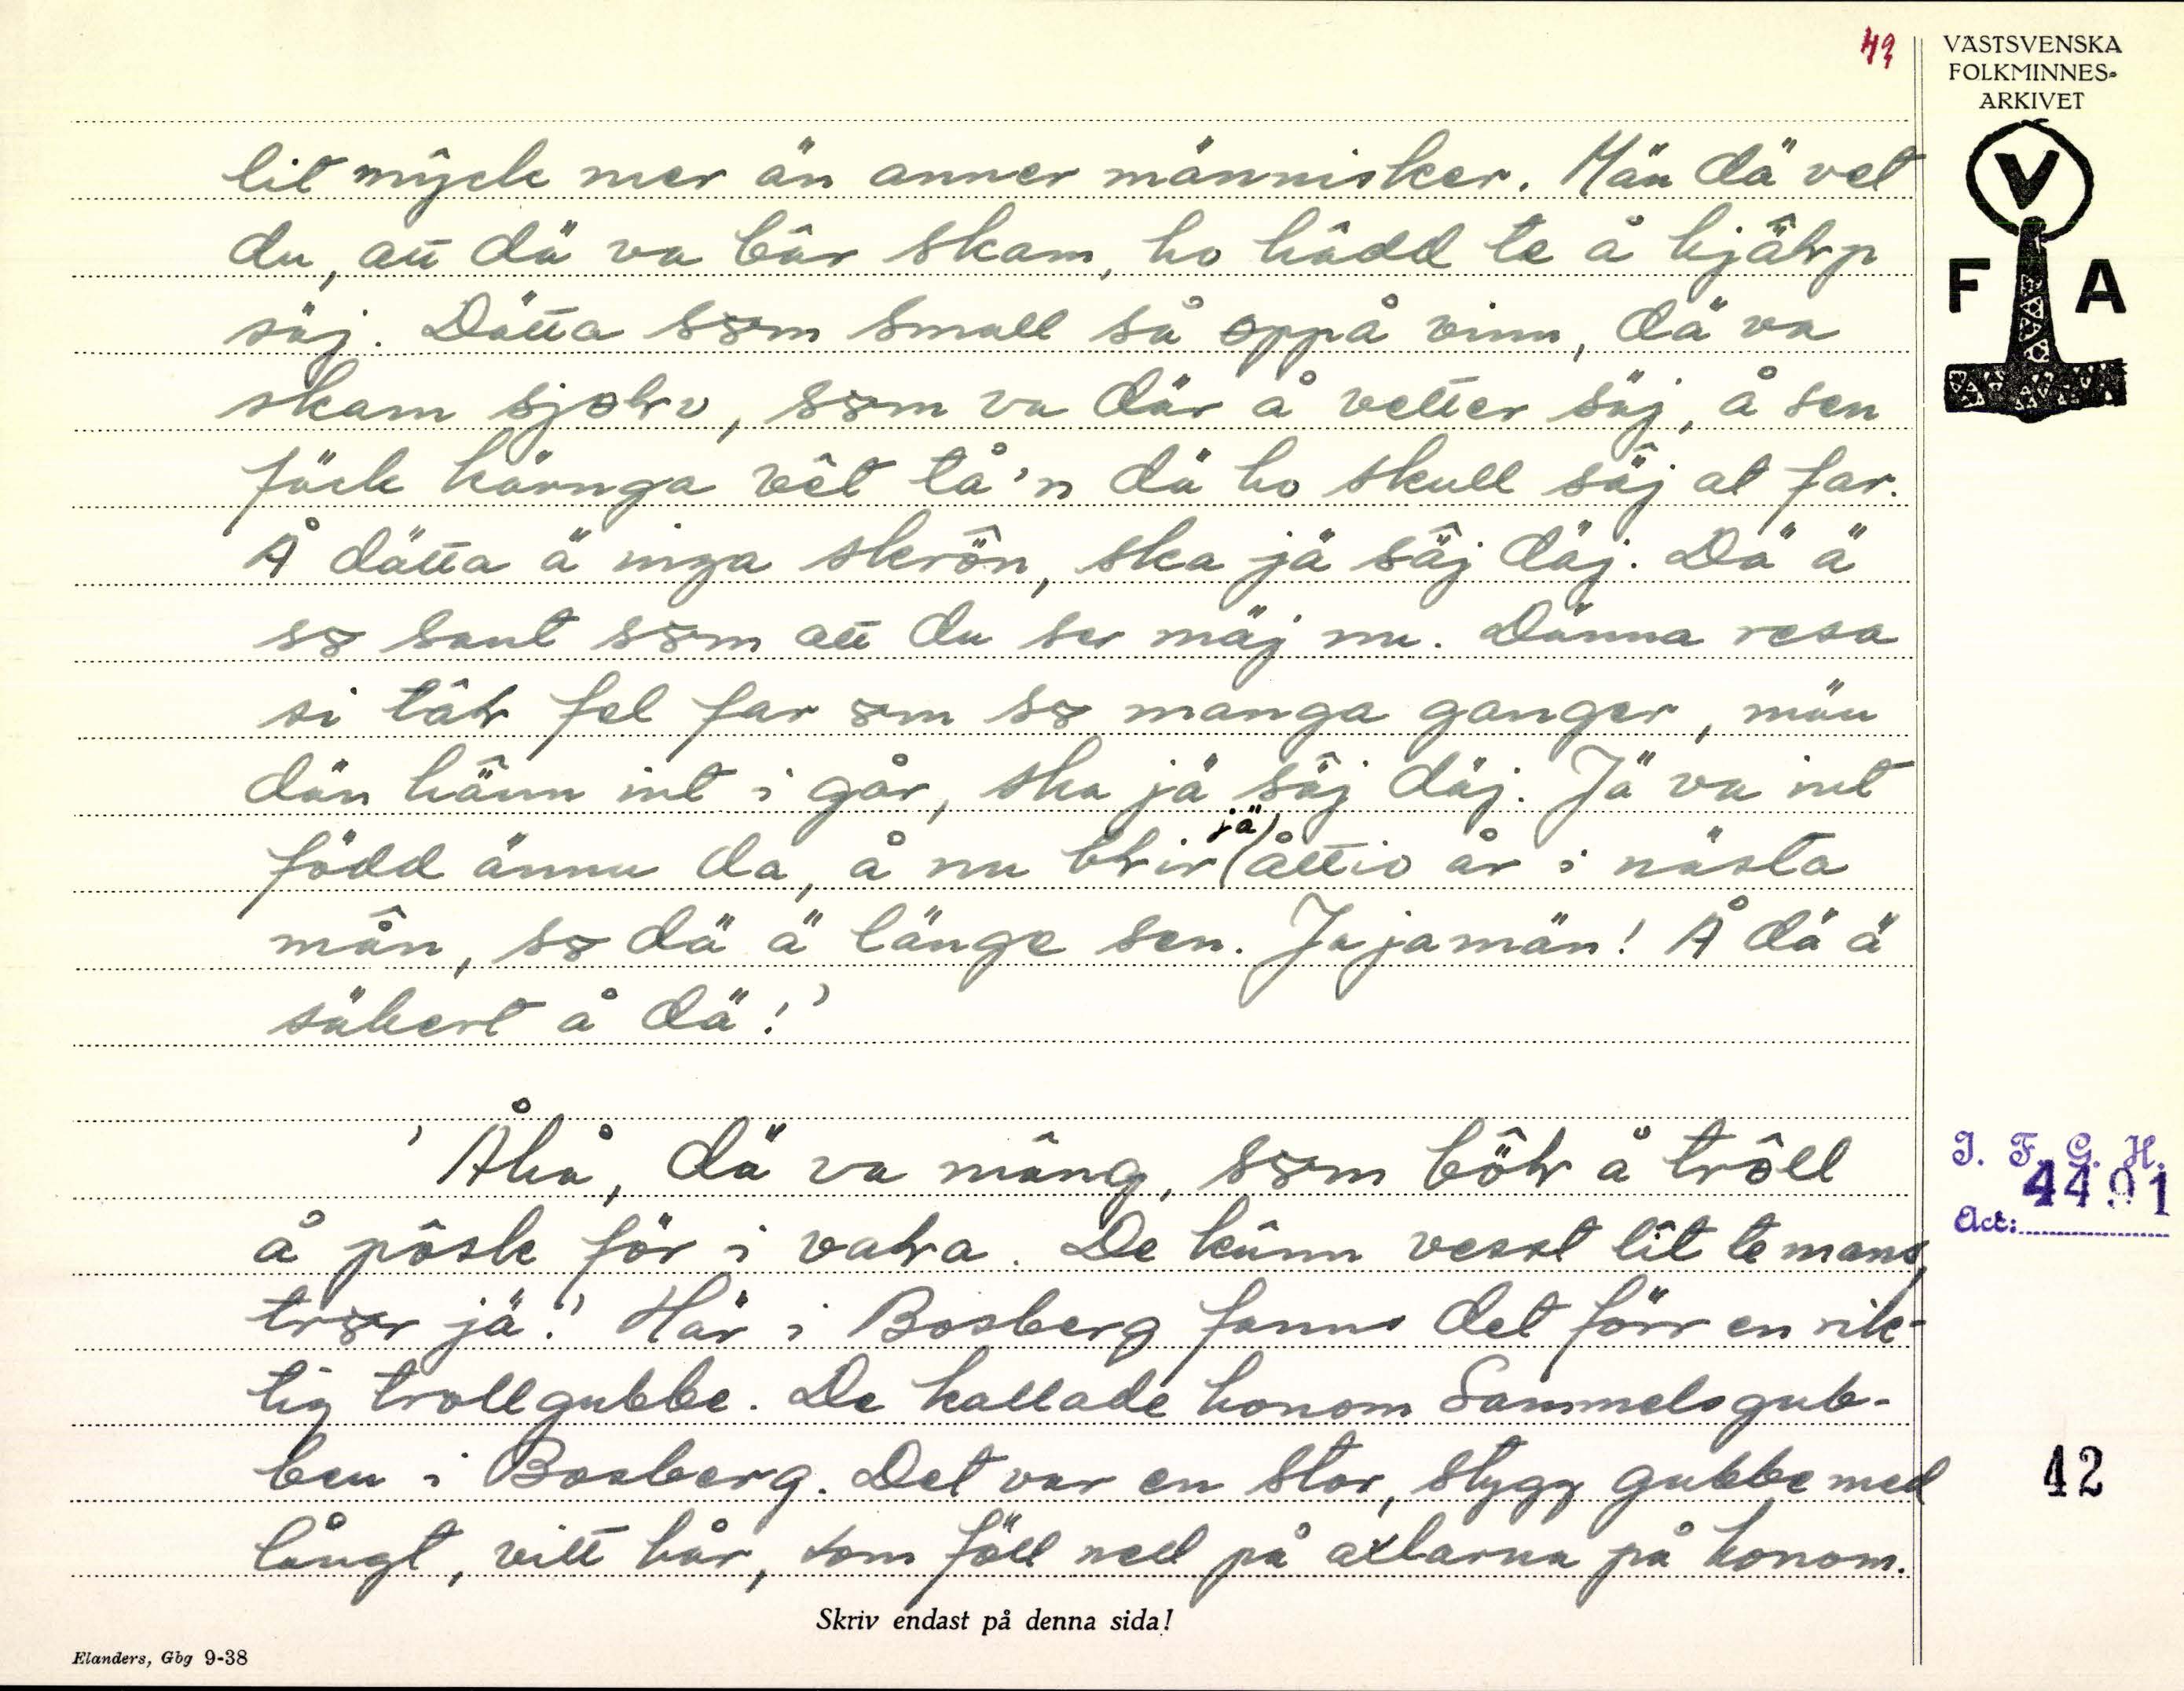 49
VÄSTSVENSKA
FOLKMINNES-
ARKIVET
V
F A
lit mŷck mer än anner människer. Män dä vet
du, att dä va bâr skam, ho hâdd te å hjâɫp
säj. Dätta sɔm small så oppå vinn, dä va
skam sjoɫv, sɔm va där å vetter säj, å sen
fäck kärnga vêt tå'n dä ho skull säj at far.
Å dätta ä inga skrôn, ska jä säj däj. Dä ä
sɔ sant sɔm att du ser mäj nu. Dänna resa
si tâɫ fel far ɔm sɔ manga ganger, män
dän hânn int i går, ska jä säj däj. Jä va int
född ännu da, å nu bɫir jä åttio år i nästa
mân, sɔ dä ä länge sen. Jajamän! Å dä ä
säkert å dä!'
'Åhå, dä va mâng, sɔm bôɫ å trôll
å pôsk för i vaɫa. De kûnn vesst lît te mans,
trɔr jä.' Här i Bosberg fanns det förr en rik-
tig trollgubbe. De kallade honom Sammelsgub-
ben i Bosberg. Det var en stor, stygg gubbe med
långt, vitt hår, som föll ned på axlarna på honom.
I. F. G. H.
4401
Acc:
42
Skriv endast på denna sida!
Elanders, Gbg 9-38